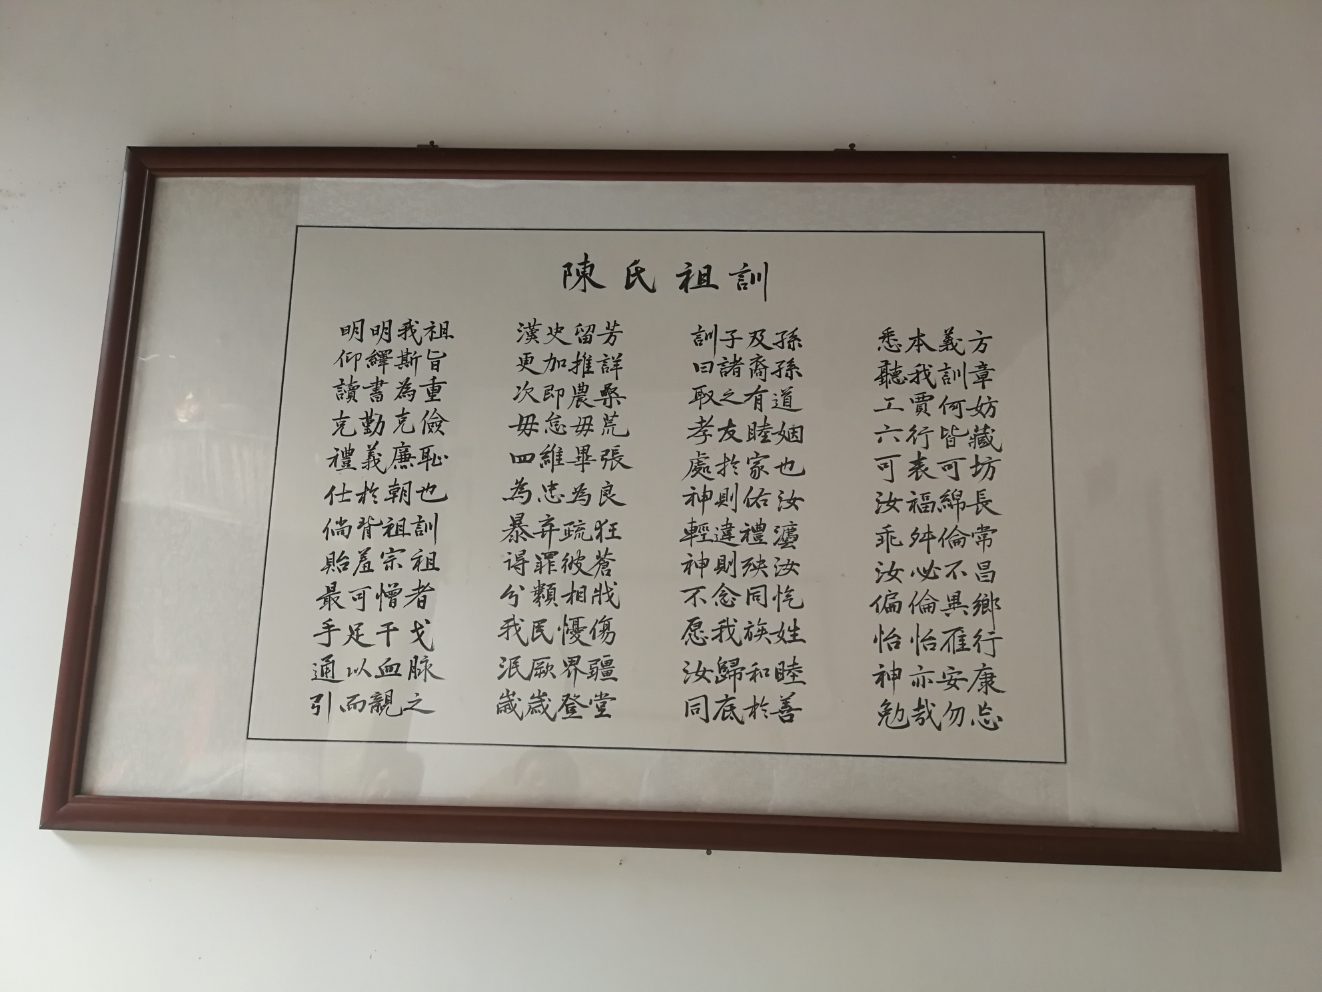 陳氏祖訓
明明我祖 漢史留芳 訓子及孫 悉本義方
仰繹斯旨 更加推詳 曰諸裔孫 聽我訓章
讀書為重 次即農桑 取之有道 工賈何妨
克勤克儉 毋怠毋荒 孝友睦姻 六行皆藏
禮義廉恥 四維畢張 處於家也 可表可坊
仕於朝也 為忠為良 神則佑汝 汝福綿長
倘背祖訓 暴弃疏狂 輕違禮灋 乖舛倫常
貽羞宗祖 得罪彼蒼 神則殃汝 汝必不昌
最可憎者 分類相戕 不念同忾 偏倫異鄉
手足干戈 我民憂傷 愿我族姓 怡怡雁行
通以血脉 泯厥界疆 汝歸和睦 神亦安康
引而親之 歲歲登堂 同底於善 勉哉勿忘